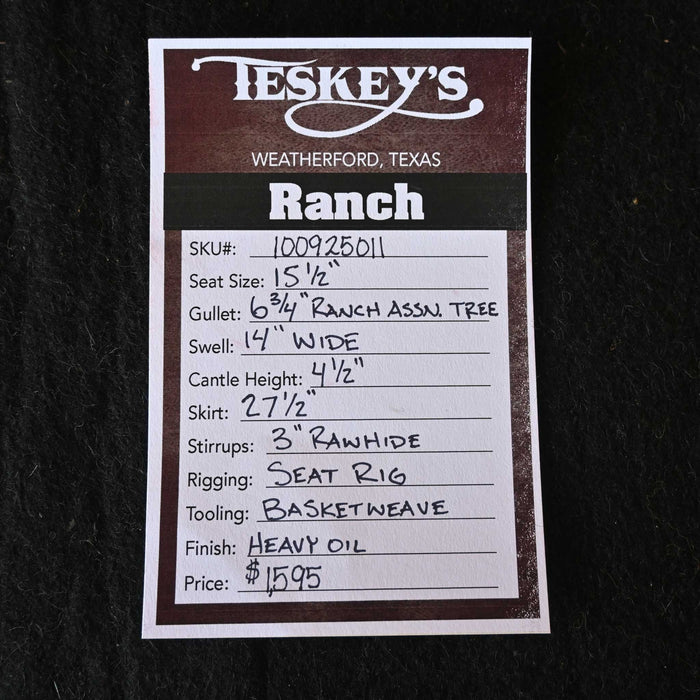 TESKEY'S
WEATHERFORD, TEXAS
Ranch
SKU#: 100925011
Seat Size: 15 1/2"
Gullet: 6 3/4" RANCH ASSN. TREE
Swell: 14" WIDE
Cantle Height: 4 1/2"
Skirt: 27 1/2"
Stirrups: 3" RAWHIDE
Rigging: SEAT RIG
Tooling: BASKETWEAVE
Finish: HEAVY OIL
Price: $1,595